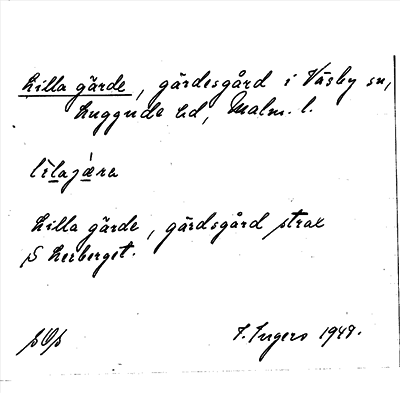 Lilla gärde, gärdesgård i Väsby sn,
Luggude hd, Malm. l.
lìlajǽra
Lilla gärde, gärdsgård strax
S Lerberget.
I. Ingers 1949.